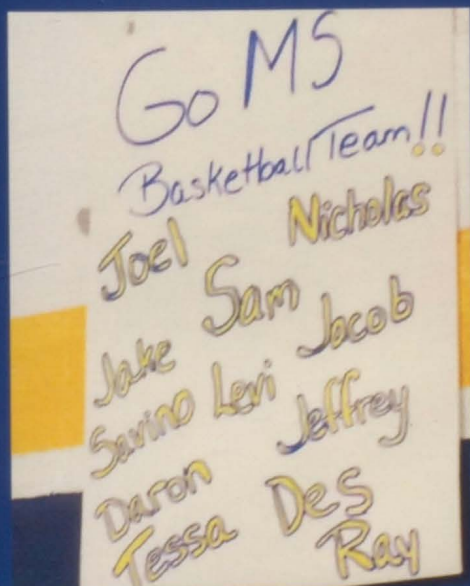 Go MS
Basketball Team!!
Joel Nicholas
Sam
Jake Jacob
Savino Levi
Jeffrey
Daron Des
Tessa Ray